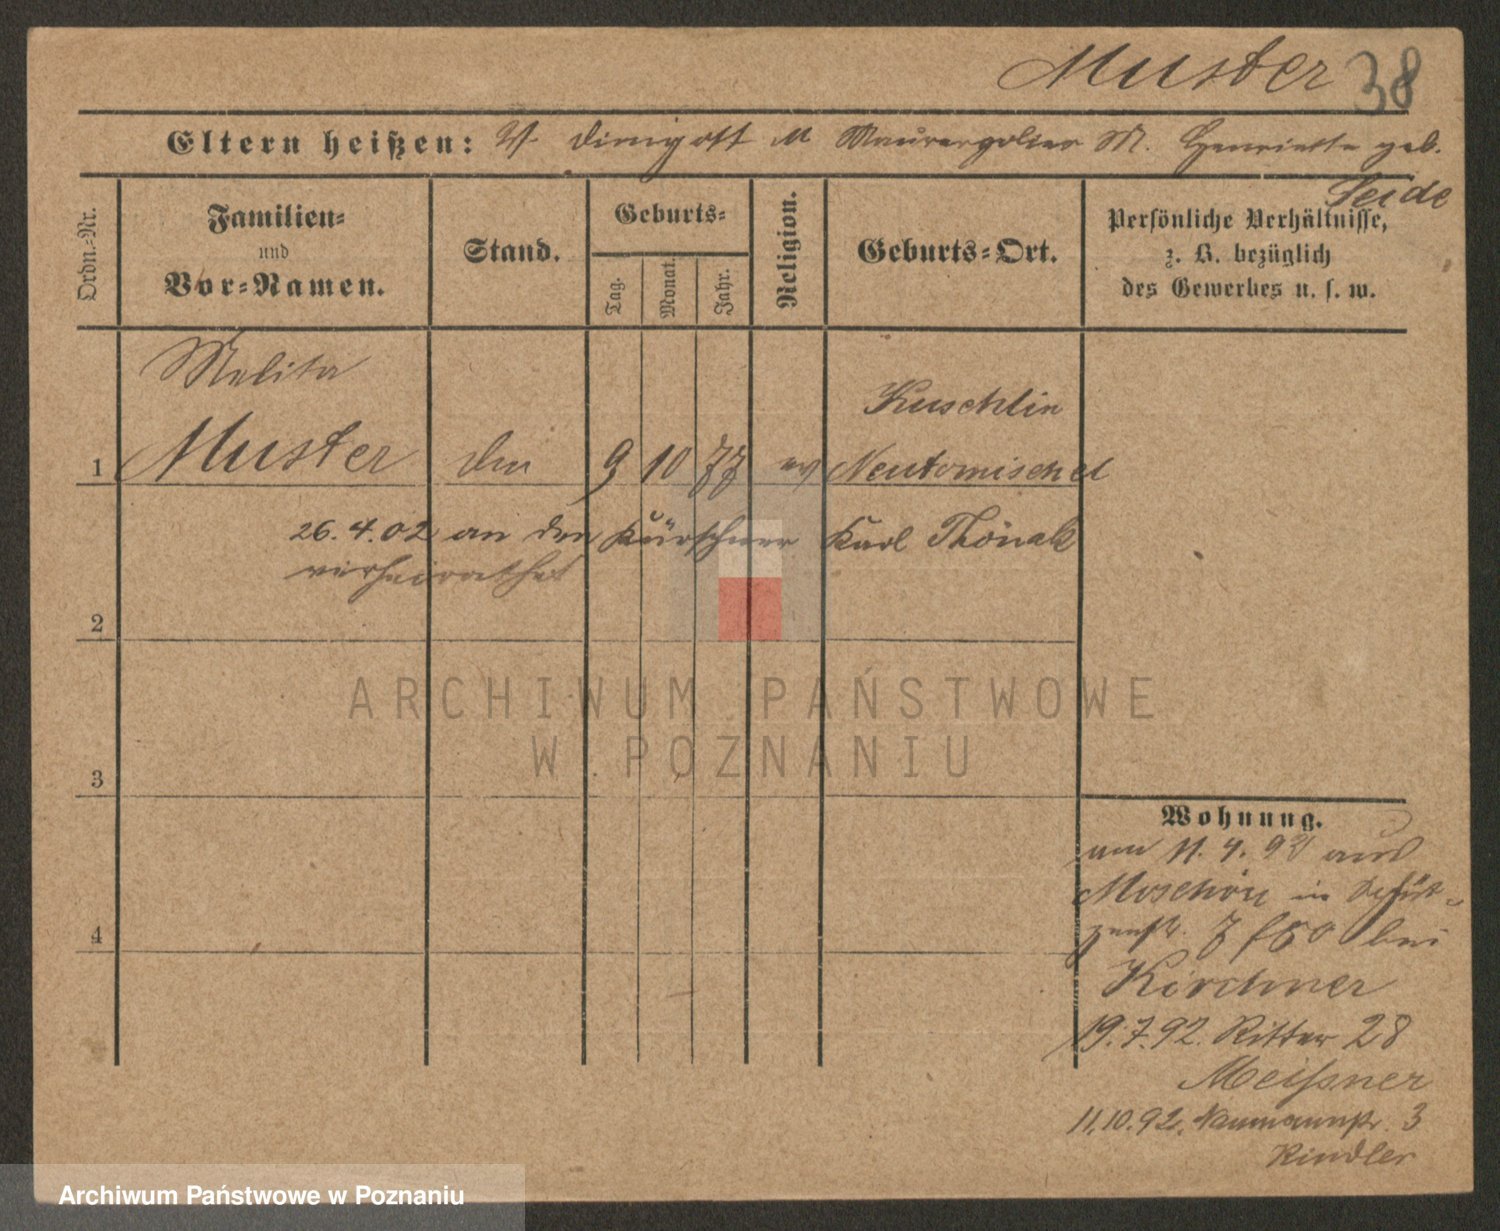 Muster 38
Eltern heißen: V. M Maurerpolier M. Henriette geb.
Seide
Ordn.=Nr.
Familien=
und
Vor=Namen.
Stand.
Geburts=
Tag.
Monat.
Jahr.
Religion.
Geburts=Ort.
Persönliche Verhältnisse,
z. B. bezüglich
des Gewerbes u. s. w.
Melita
Kuschlin
1 Muster 9 10 77 ev Neutomischel
26.4.02 an den Kürschner Karl Thönak
verheirathet
2
3
4
Wohnung.
am 11.4.92 aus
Moschin in Schüt-
zenstr. 7 bei
Kirchner
19.7.92. Ritter 28
Meißner
11.10.92. Naumannstr. 3
Kindler
ARCHIWUM PAŃSTWOWE
W POZNANIU
Archiwum Państwowe w Poznaniu